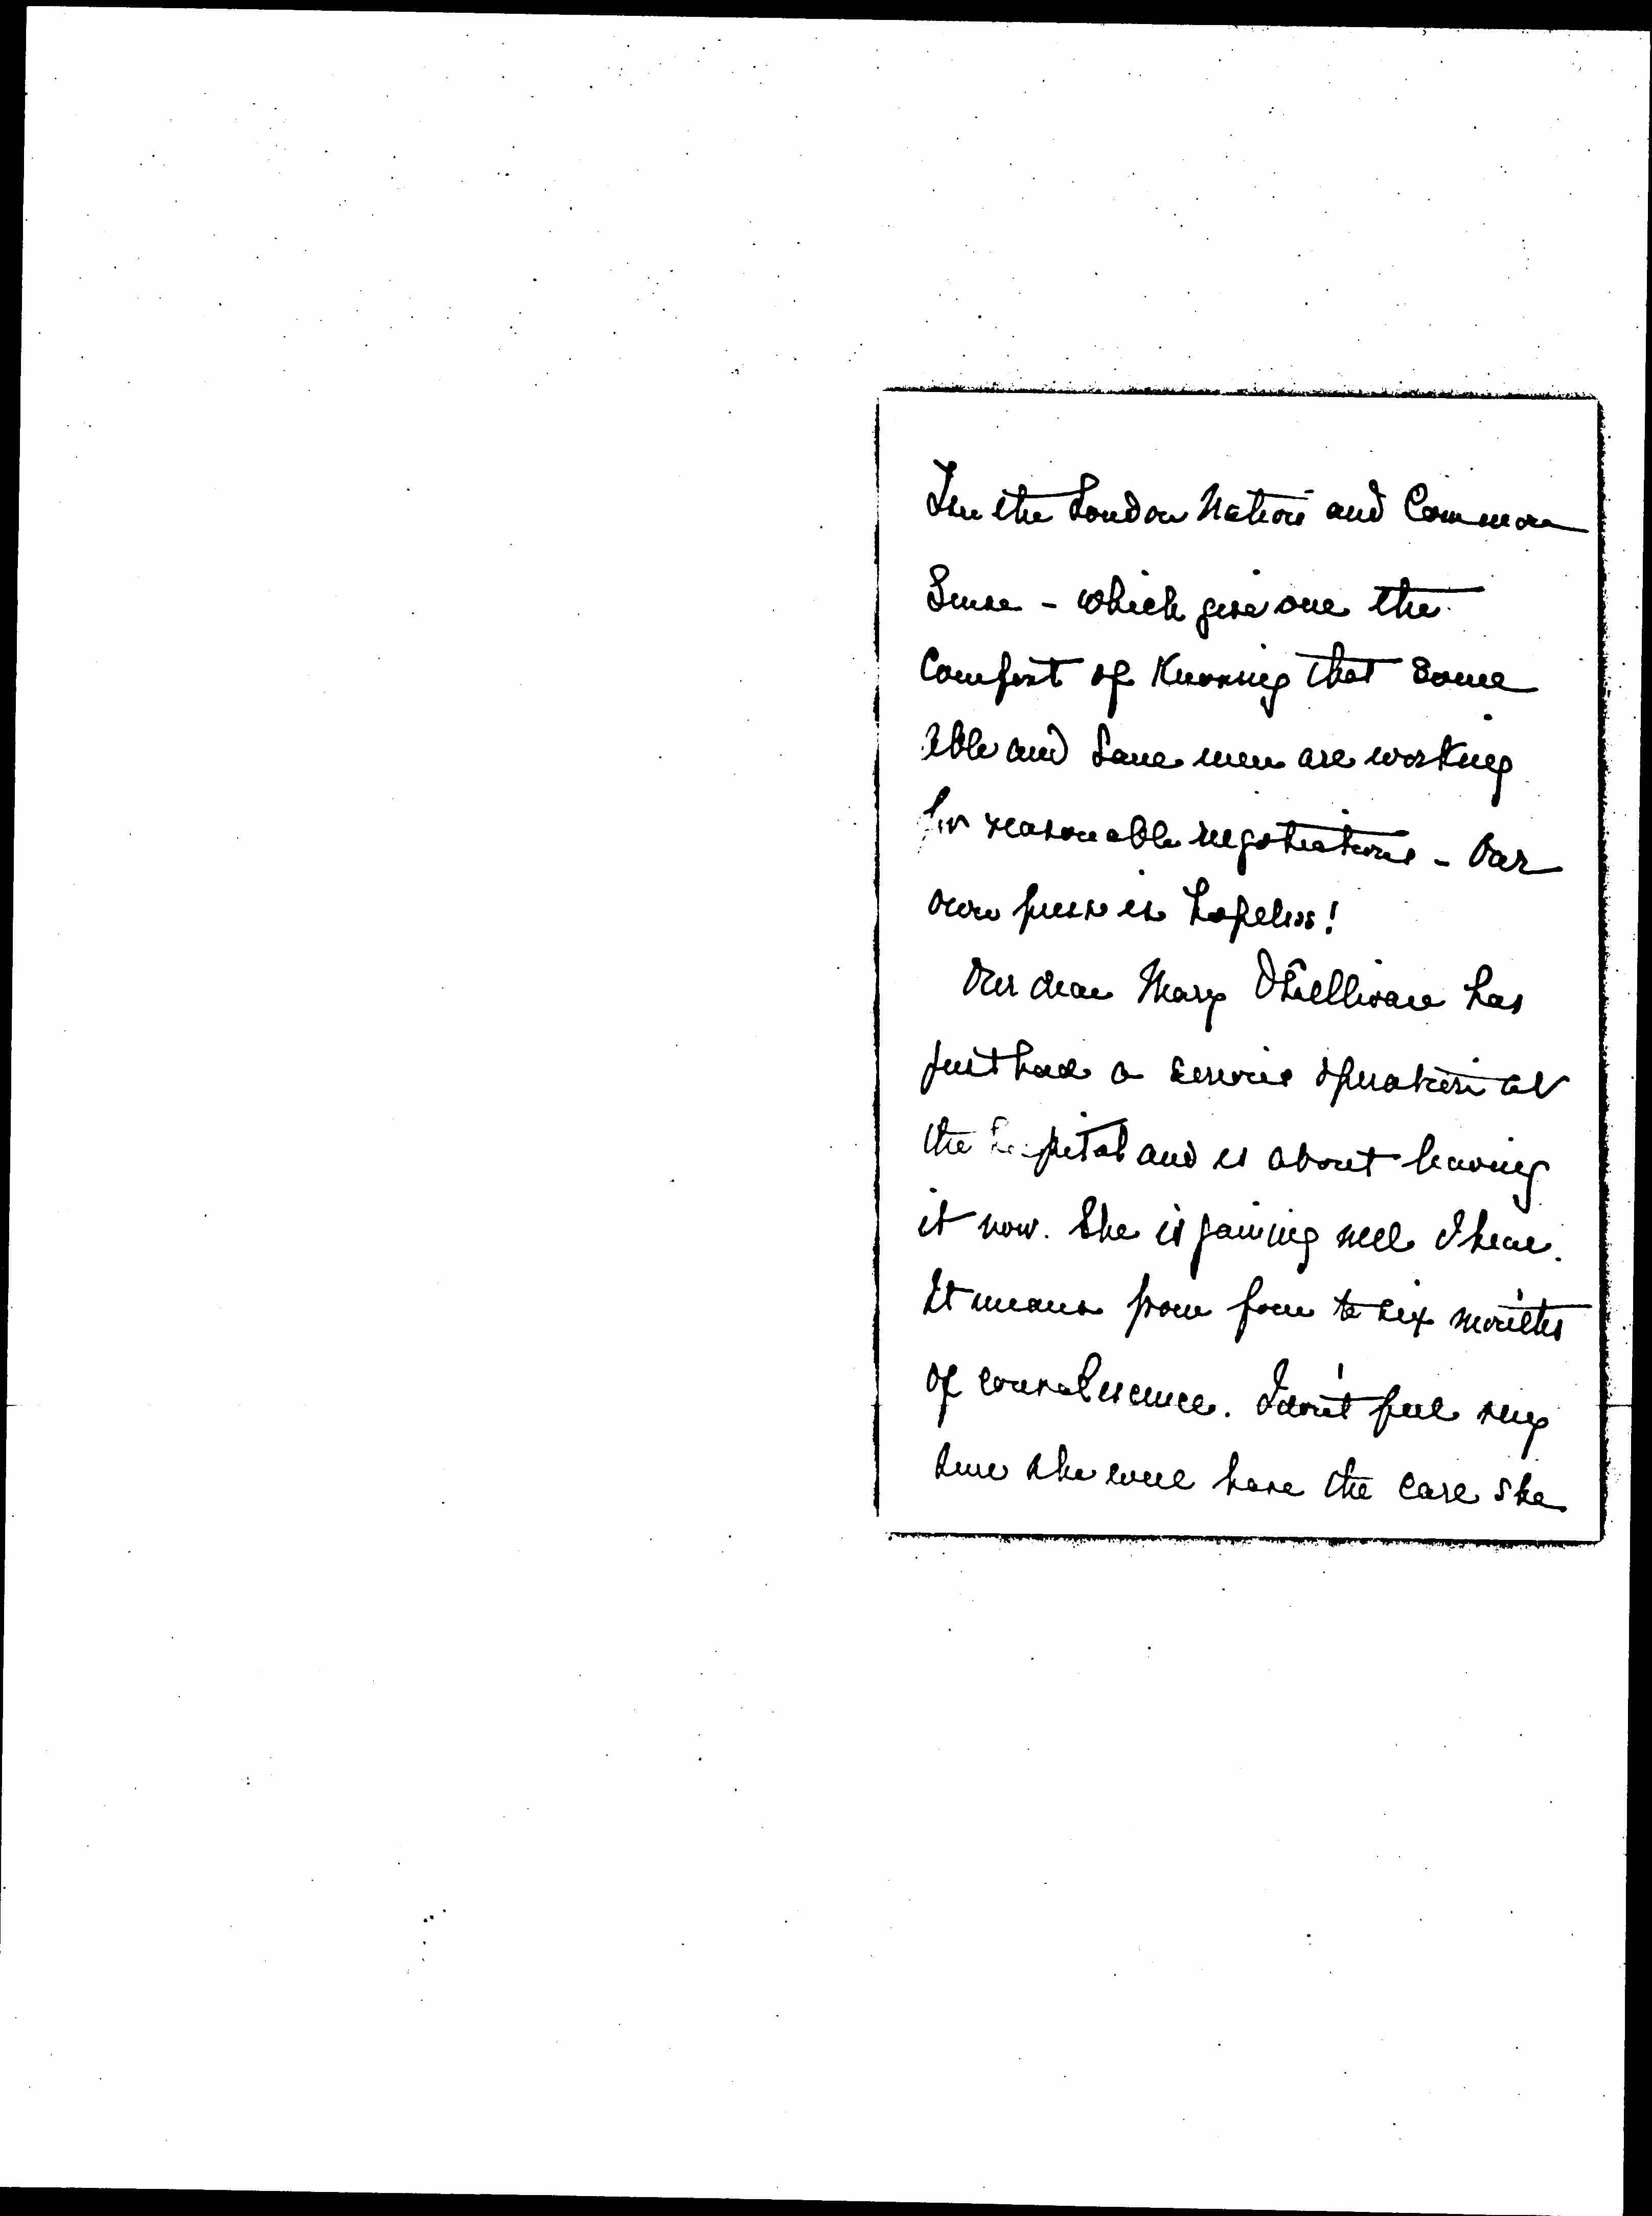 See the London Nation and Common
Sense - which give one the
Comfort of Knowing that Some
able and Sane men are working
for reasonable negotiations - Our
own press is hopeless!
Our dear Mary O'Sullivan has
just had a serious operation at
the hospital and is about leaving
it now. She is gaining well I hear.
It means from four to six months
of convalescence. I don't feel very
sure she will have the care she